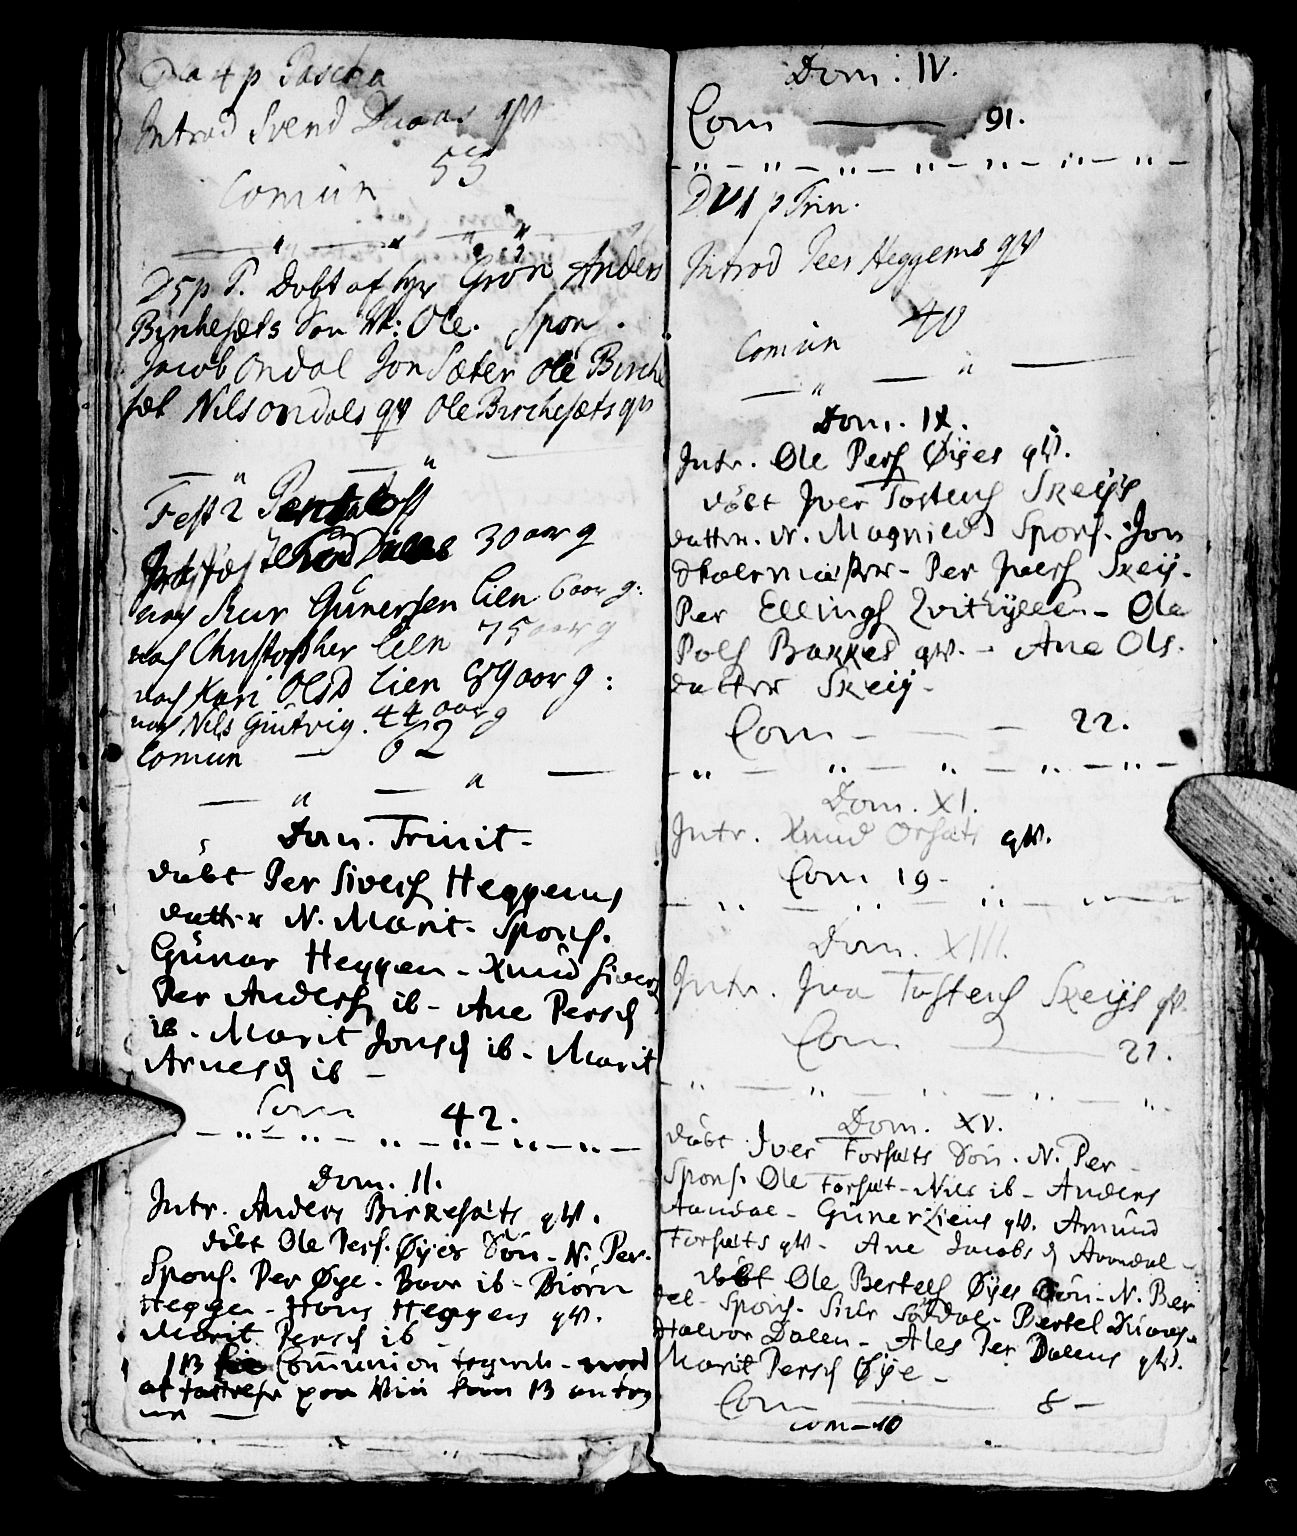 Da 4 p Pascha
Introd Svend Duaas qv
Comun 55
D 5 p P. Døbt af hr Grøn Anders
Birkesæts Søn N: Ole. Spons.
Jacob Ondal Jon Sæter Ole Birche
sæt Nils Ondals qv Ole Birchesæts qv
Fest 2 Pentecost
30 aar g
Gunersen Lien 6 aar g:
Christopher Lien 75 aar g
Kari Olsd Lien 89 aar g:
Nils Gütvig. 44 aar g
Comun — 62
Dom. Trinit-
døbt Per Sivers Heggems
datter N. Marit. Spons.
Günar Heggen - Knud Sivers
Per Anders ib - Ane Persd
ib - Marit Jonsd ib - Marit
Arnesd ib -
Com 42.
Dom. II.
Intr. Anders Birkesæts qv.
døbt Ole Pers. Øyes Søn - N. Per.
Spons. Per Øye - Baar ib - Biørn
Heggen - Hans Heggens qv.
Marit Persd ib
13 Communion
13
Dom. IV.
Com — 91.
D VII p Trin.
Introd Peer Heggems qv
Comun 40
Dom. IX.
Intr. Ole Pers Øyes qv.
døbt Iver Tostens Skeiis
datter. N. Magnild Spons. Jon
Per Ivers Skeij.
Per Ellings - Ole
Pols Bakked qv. - Ane Ols.
datter Skeij -
Com - 22.
Dom. XI.
Intr. Knud Orsæts qv.
Com 19-
Dom. XIII.
Intr. Iva Tostens Skeiis qv.
Com 21.
Dom. XV.
døbt Iver Forsæts Søn. N. Per -
Spons. Ole Forsæt - Nils ib - Anders
Aandal - Güner Liens qv. Amund
Forsæts qv - Ane Jacobsd Aandal -
døbt Ole Bertels Øyes Søn - N. Ber
tel - Spons. Bertel
Halvor Dalen - Ales Per Dalens qv.
Marit Persd Øye -
Com — 8-
com - 10